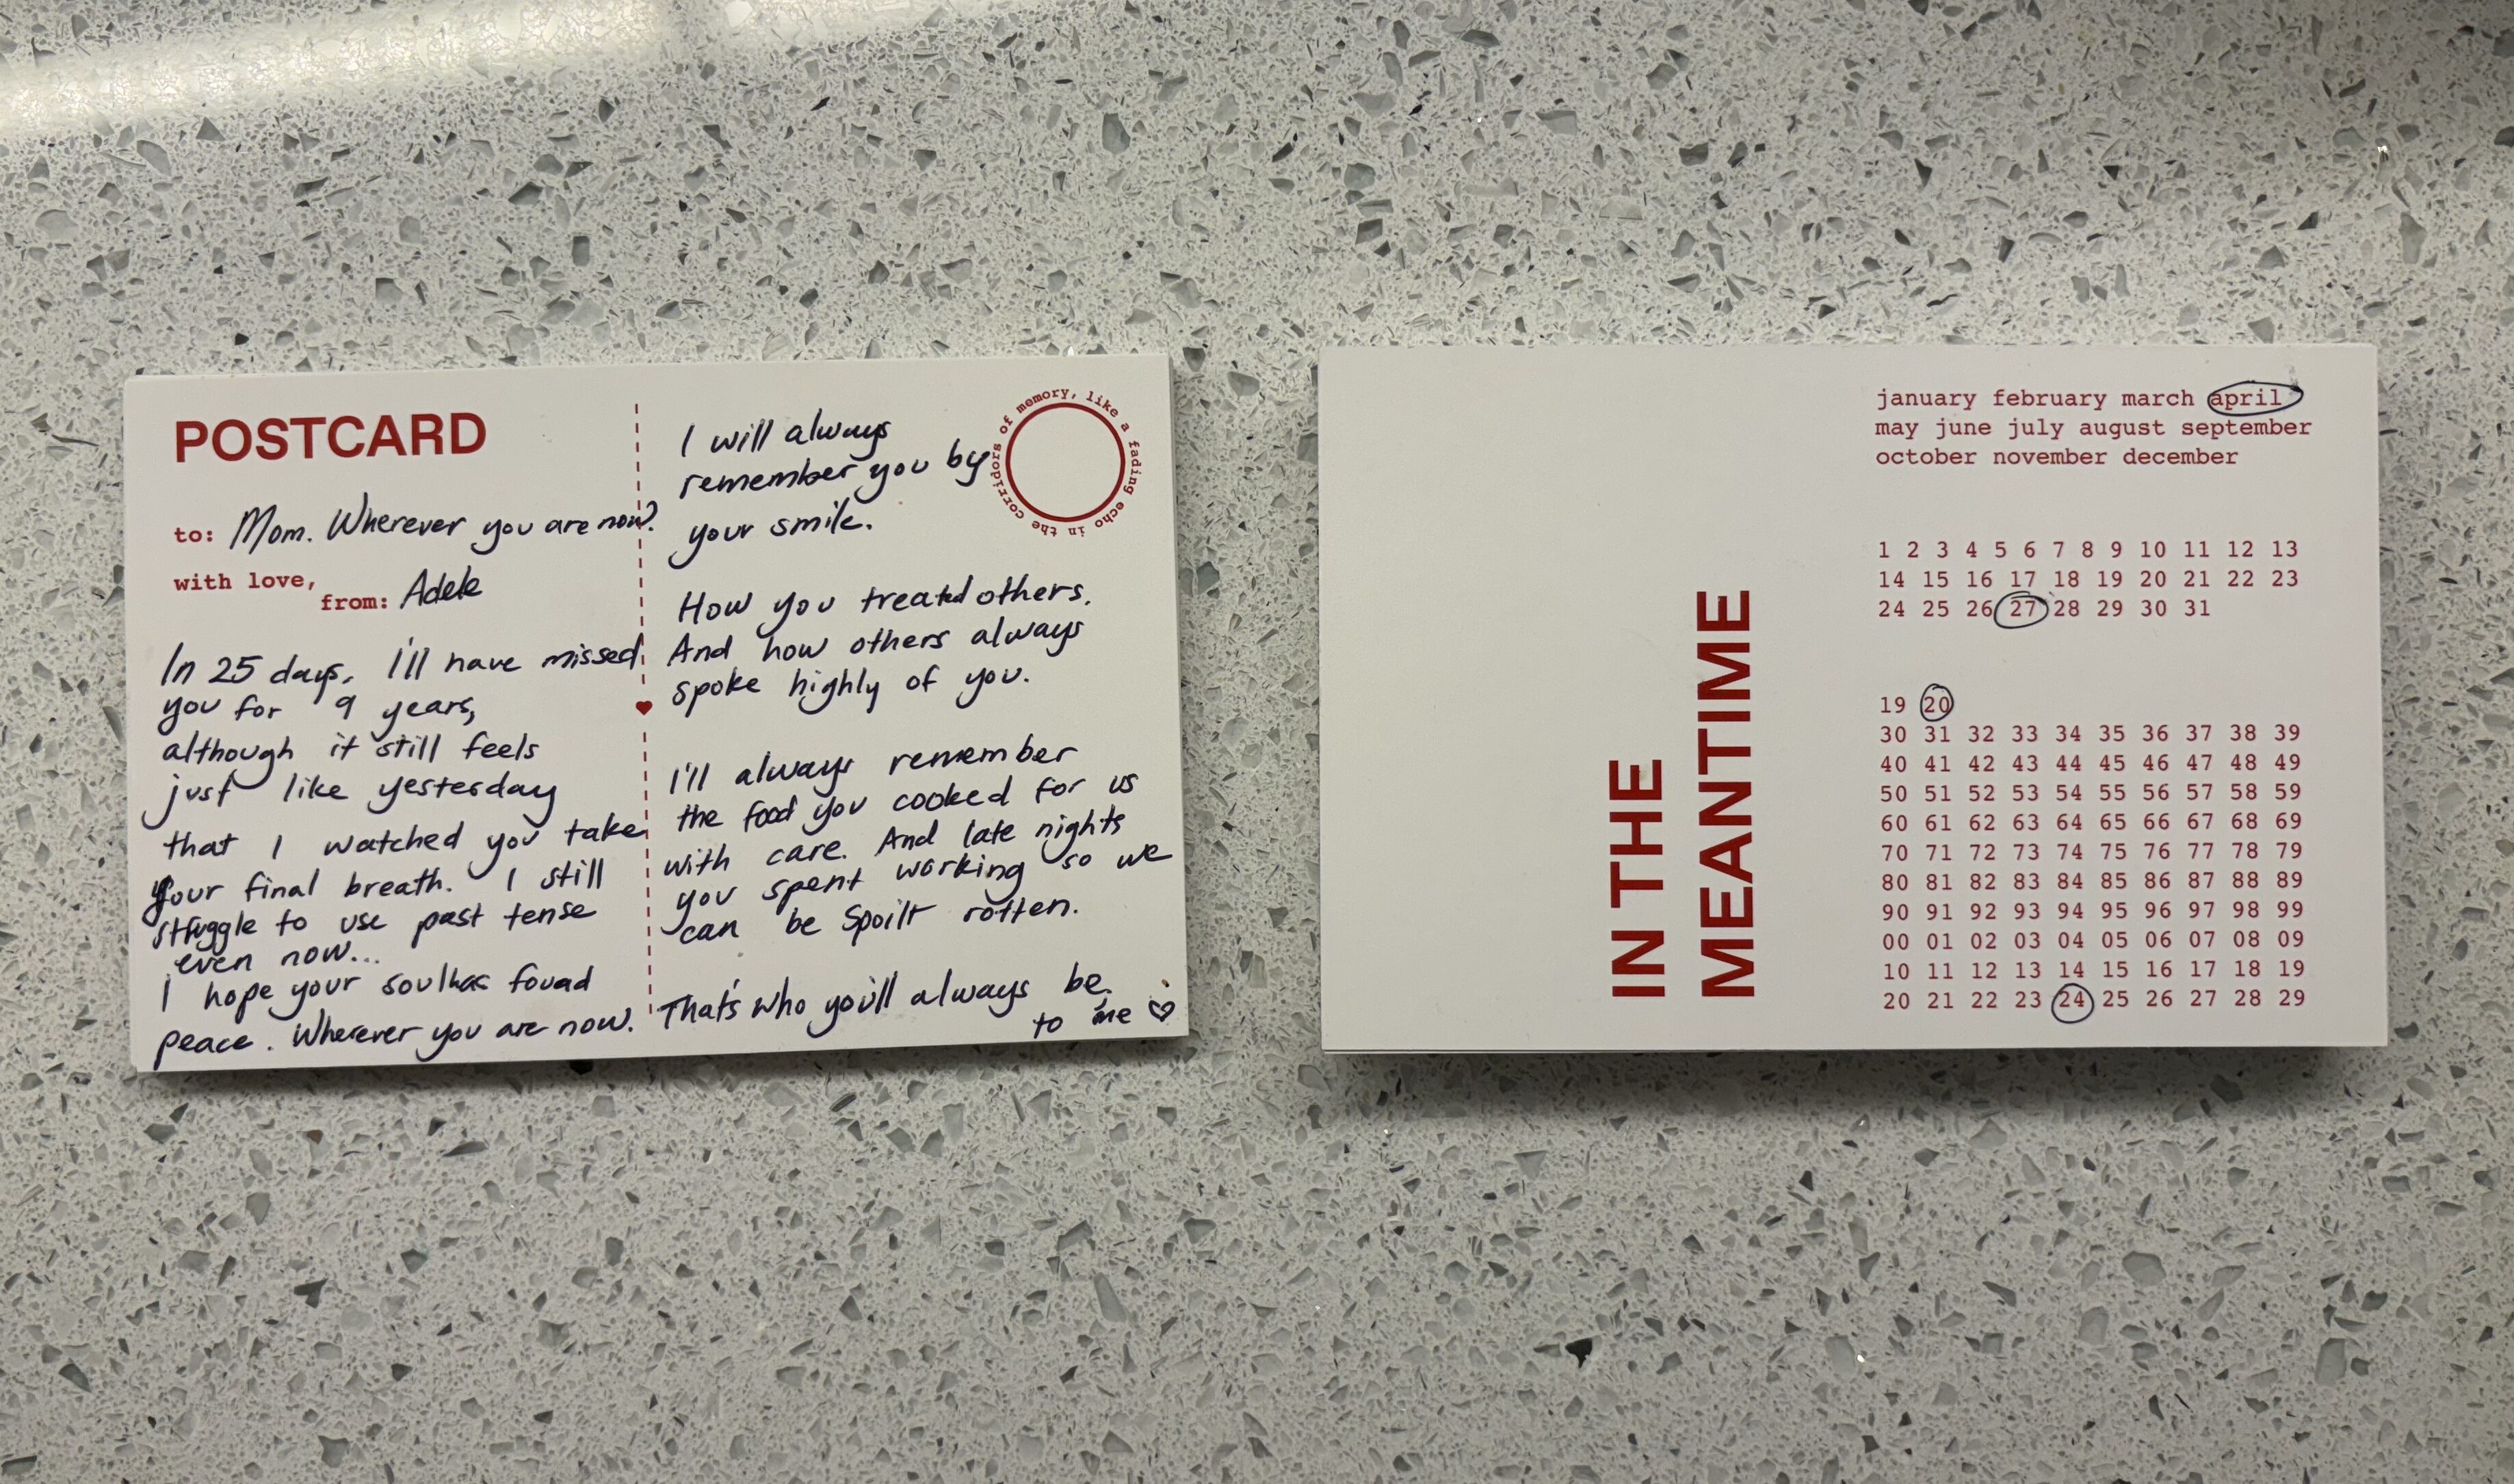 POSTCARD
to: Mom. Wherever you are now?
with love,
from: Adele
In 25 days, I'll have missed
you for 9 years,
although it still feels
just like yesterday
that I watched you take
your final breath. I still
struggle to use past tense
even now...
I hope your soul has found
peace. Wherever you are now.
I will always
remember you by
your smile.
How you treated others.
And how others always
spoke highly of you.
I'll always remember
the food you cooked for us
with care. And late nights
you spent working so we
can be spoilt rotten.
That's who you'll always be.
to me ♡
like a fading echo in the corridors of memory,
IN THE
MEANTIME
january february march april
may june july august september
october november december
1 2 3 4 5 6 7 8 9 10 11 12 13
14 15 16 17 18 19 20 21 22 23
24 25 26 27 28 29 30 31
19 20
30 31 32 33 34 35 36 37 38 39
40 41 42 43 44 45 46 47 48 49
50 51 52 53 54 55 56 57 58 59
60 61 62 63 64 65 66 67 68 69
70 71 72 73 74 75 76 77 78 79
80 81 82 83 84 85 86 87 88 89
90 91 92 93 94 95 96 97 98 99
00 01 02 03 04 05 06 07 08 09
10 11 12 13 14 15 16 17 18 19
20 21 22 23 24 25 26 27 28 29